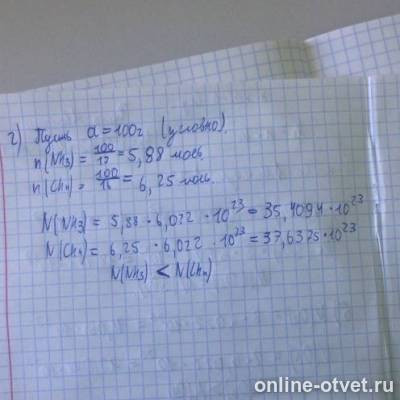 г) Пусть a = 100г (условно).
n(NH3) = 100/17 = 5,88 моль
n(CH4) = 100/16 = 6,25 моль.
N(NH3) = 5,88 · 6,022 · 10^23 = 35,4094 · 10^23
N(CH4) = 6,25 · 6,022 · 10^23 = 37,6375 · 10^23
N(NH3) < N(CH4)
online-otvet.ru